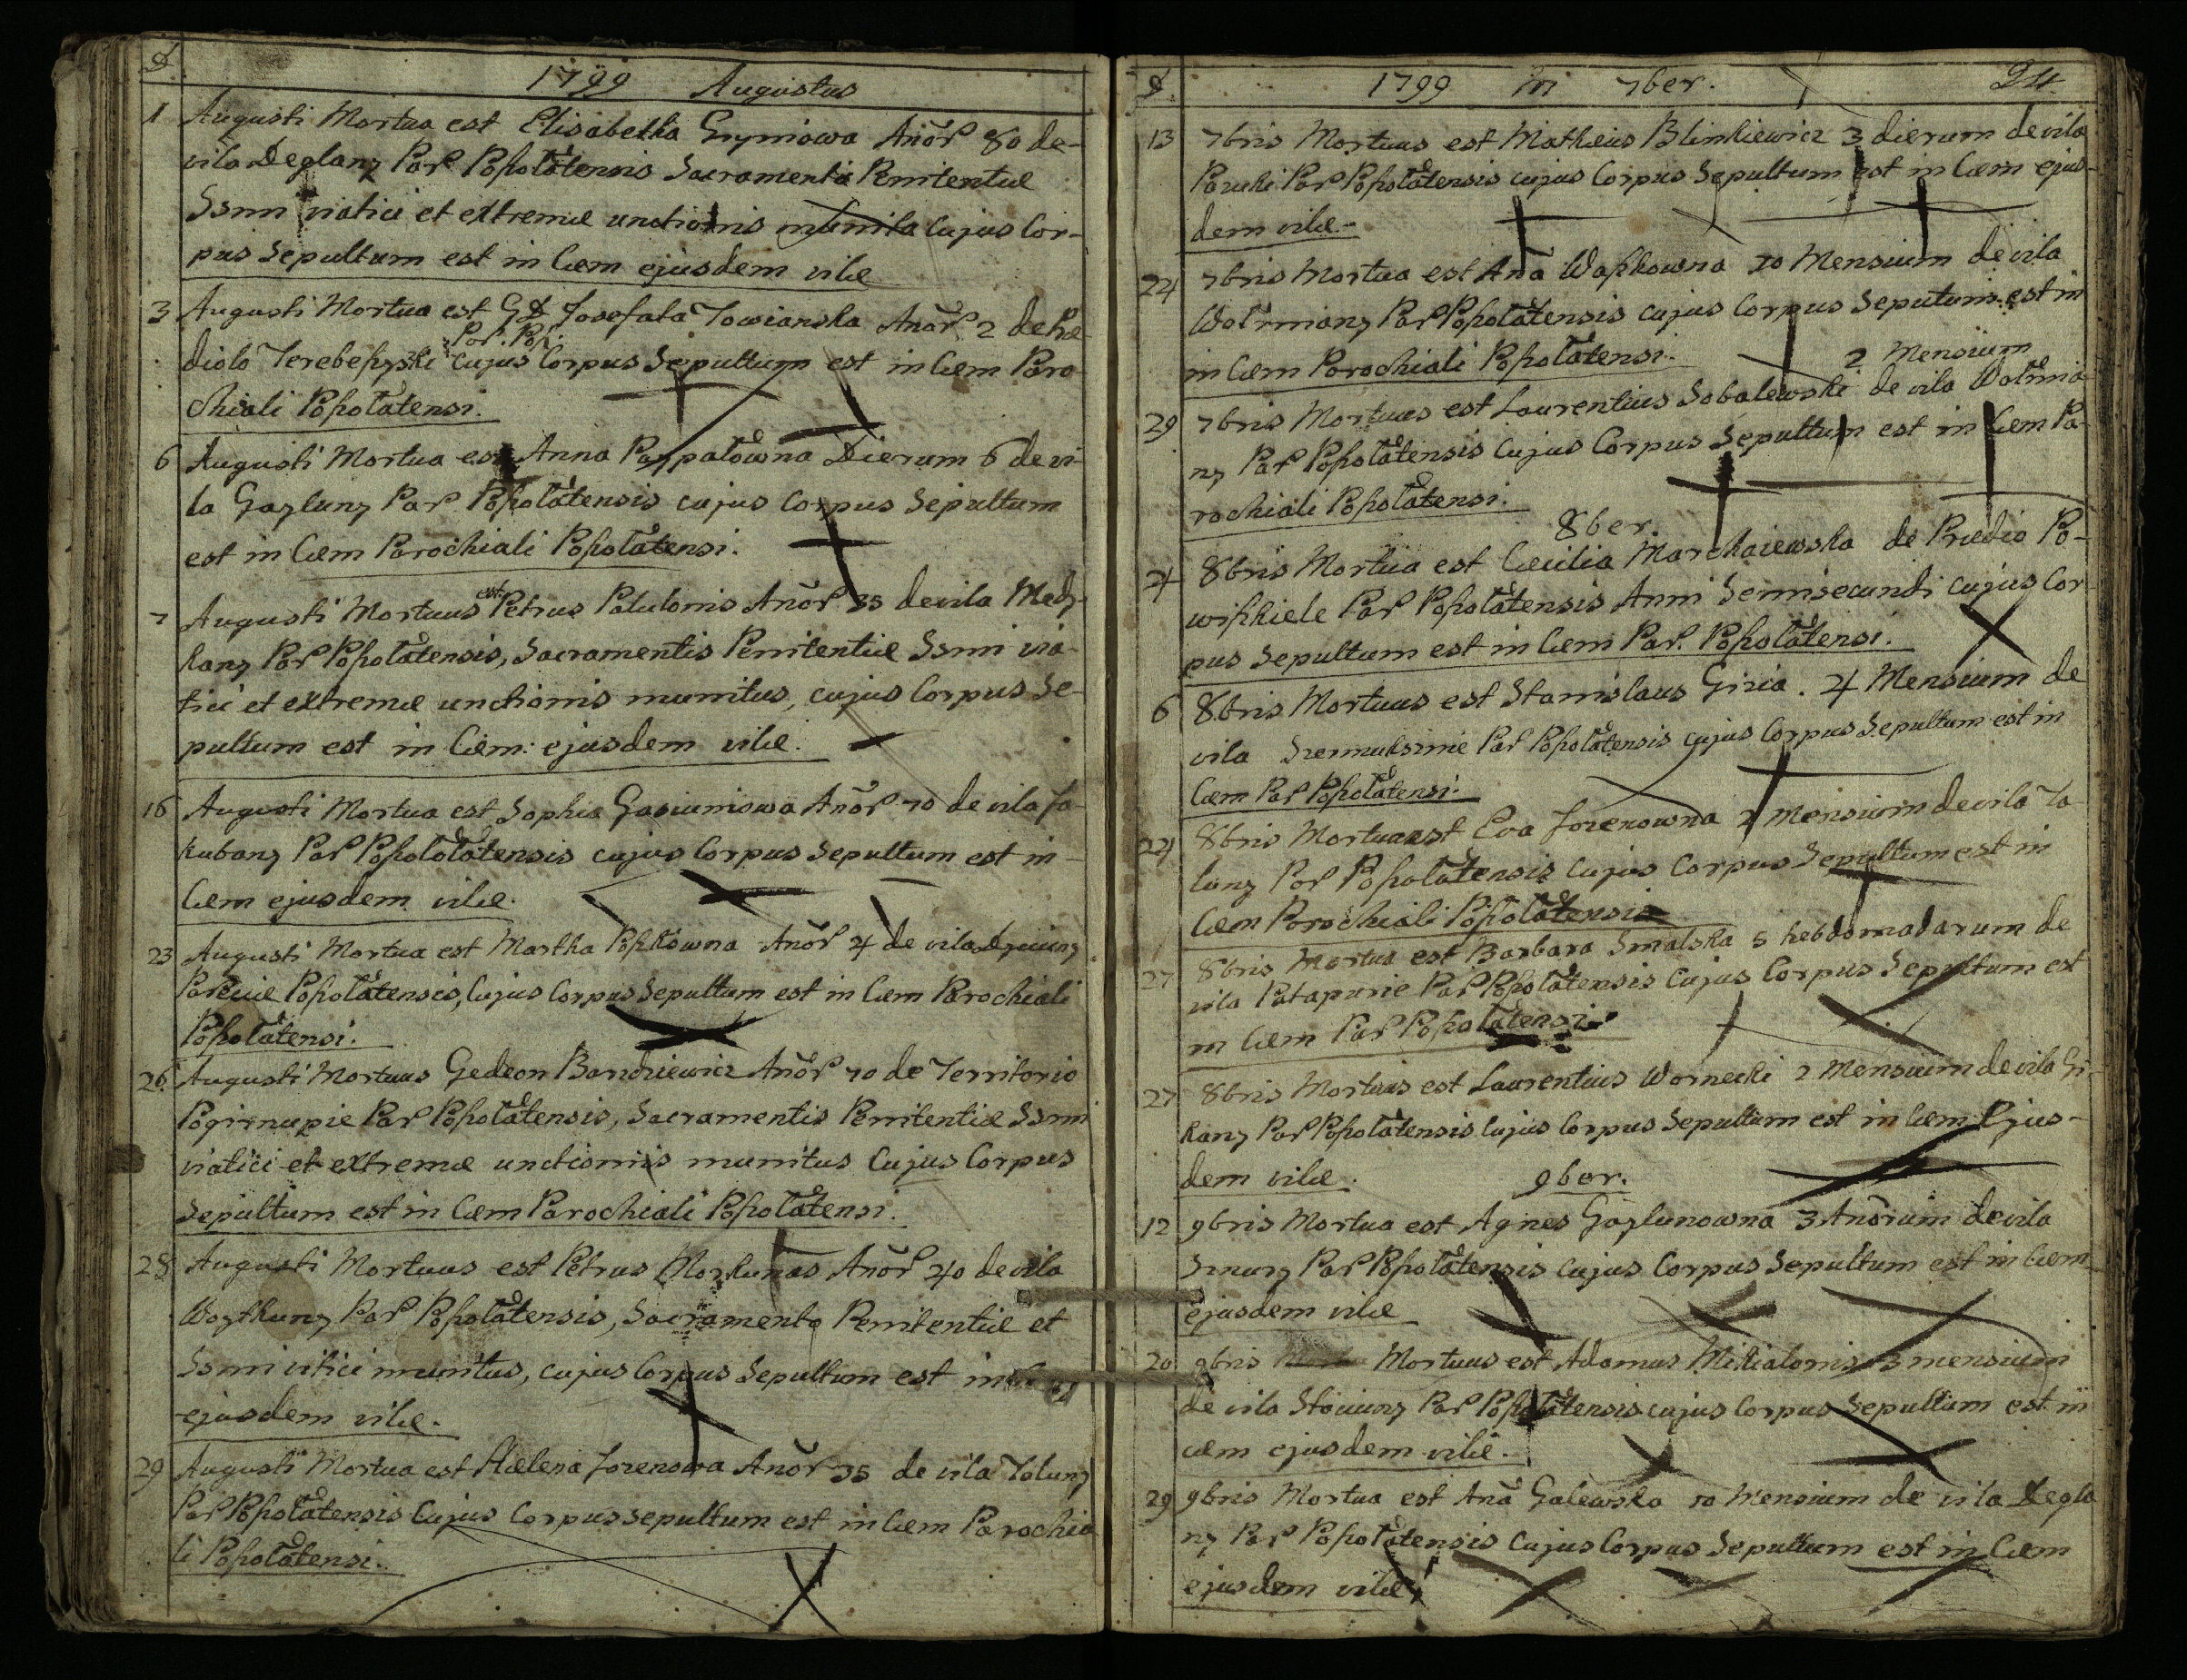 D
1799 Augustus
1 Augusti Mortua est Elisabetha Gryniowa Anor 80 de-
vila Deglany Par Popolatensis Sacramentis Penitentiæ
Ssmi viatici et extremæ unctionis munita Cujus Cor-
pus Sepultum est in Cæm ejusdem vilæ
3 Augusti Mortua est GD Josefata Towianska Anor 2 de Præ
Par. Pop.
diolo cujus Corpus Sepultum est in Cæm Paro
chiali Popolatensi.
6 Augusti Mortua est Anna Dierum 6 de vi-
la Gayluny Par Popolatensis cujus Corpus Sepultum
est in Cæm Parochiali Popolatensi.
7 Augusti Mortuus est Petrus Patulonis Anor 35 de vila Medy-
kany Par Popolatensis, Sacramentis Penitentiæ Ssmi via-
tici et extremæ unctionis munitus, cujus Corpus Se-
pultum est in Cæm: ejusdem vilæ.
16 Augusti Mortua est Sophia Gasiuniowa Anor 70 de vila Ja-
kubany Par Popololatensis cujus Corpus Sepultum est in-
Cæm ejusdem vilæ.
23 Augusti Mortua est Martha Anor 4 de vila
Popolatensis, Cujus Corpus Sepultum est in Cæm Parochiali
Popolatensi.
26 Augusti Mortuus Gedeon Bandziewicz Anor 70 de Territorio
Pogirnupie Par Popolatensis, Sacramentis Penitentiæ Ssmi
viatici et extremæ unctionis munitus Cujus Corpus
Sepultum est in Cæm Parochiali Popolatensi.
28 Augusti Mortuus est Petrus Morkunas Anor 40 de vila
Woytkuny Par Popolatensis, Sacramento Penitentiæ et
Ssmi vitici munitus, cujus Corpus Sepultum est in
ejusdem vilæ.
29 Augusti Mortua est Hælena Jozenowa Anor 35 de vila Toluny
Par Popolatensis Cujus Corpus sepultum est in Cæm Parochia
li Popolatensi.
D
1799 in 7ber. 24
13 7bris Mortuus est Matheus Blinkiewicz 3 dierum de vila
Par Popolatensis cujus Corpus Sepultum est in Cæm ejus-
dem vilæ-
24 7bris Mortua est Ana Waszkowna 10 Mensium de vila
Wolmiany Par Popolatensis cujus Corpus Seputum est in
in Cæm Parochiali Popolatensi.
2 Mensium
29 7bris Mortuus est Laurentius Sobolewski de vila Wolmia
ny Par Popolatensis Cujus Corpus Sepultum est in Cæm Pa-
rochiali Popolatensi.
8ber.
4 8bris Mortua est Cæcilia Marchaiewska de Prædio Po-
wiszkiele Par Popolatensis Anni Semisecundi cujus Cor
pus Sepultum est in Cæm Par. Popolatensi.
6 8bris Mortuus est Stanislaus Giria. 4 Mensium de
vila Szermuksznie Par Popolatensis cujus Corpus Sepultum est in
Cæm Par Popolatensi.
24 8bris Mortua est Eva Jozenowna 2 Mensium de vila To
luny Par Popolatensis Cujus Corpus Sepultum est in
Cæm Parochiali Popolatensi
27 8bris Mortua est Barbara Smalska 5 hebdomadarum de
vila Patapurie Par Popolatensis Cujus Corpus Sepultum est
in Cæm Par Popolatensi
27 8bris Mortuus est Laurentius Wornecki 2 Mensium de vila Gi-
kany Par Popolatensis Cujus Corpus Sepultum est in Cæm Ejus-
dem vilæ.
9ber.
12 9bris Mortua est Agnes Gaylunowna 3 Anorum de vila
Par Popolatensis Cujus Corpus Sepultum est in Cæm
ejusdem vilæ
20 9bris Mortuus est Adamus Mikialonis 3 mensium
de vila Stowiuny Par Popolatensis cujus Corpus Sepultum est in
cæm ejusdem vilæ.
29 9bris Mortua est Ana Galewska 10 Mensium de vila Degla
ny Par Popolatensis Cujus Corpus Sepultum est in Cæm
ejusdem vilæ